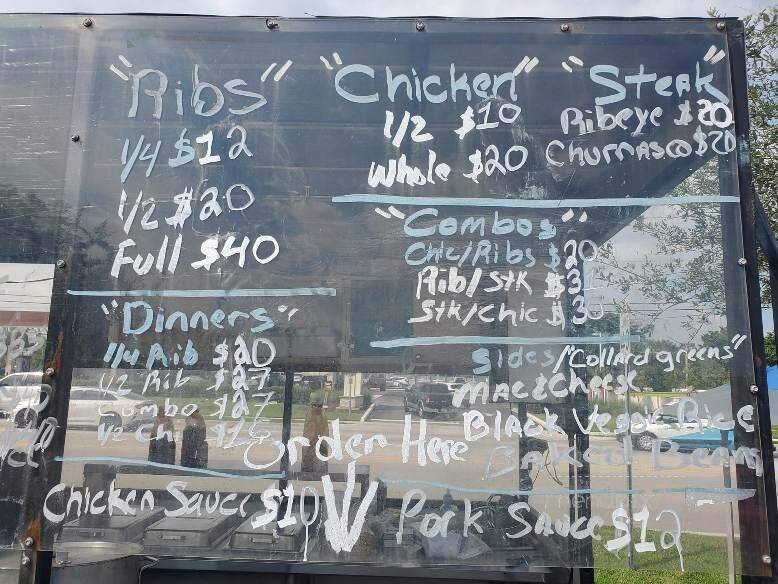 "Ribs"
1/4 $12
1/2 $20
Full $40
"Chicken"
1/2 $10
Whole $20
"Steak"
Ribeye $20
Churnasco $20
"Combos"
Chic/Ribs $20
Rib/Stk
Stk/Chic $30
"Dinners"
1/4 Rib $20
1/2 Rib $27
Combo $27
1/2 Ch
Sides/"Collard greens"
Mac&Cheese
Black Veggie Rice
Baked Bean
Order Here
Chicken Sauce $10
Pork Sauce $12